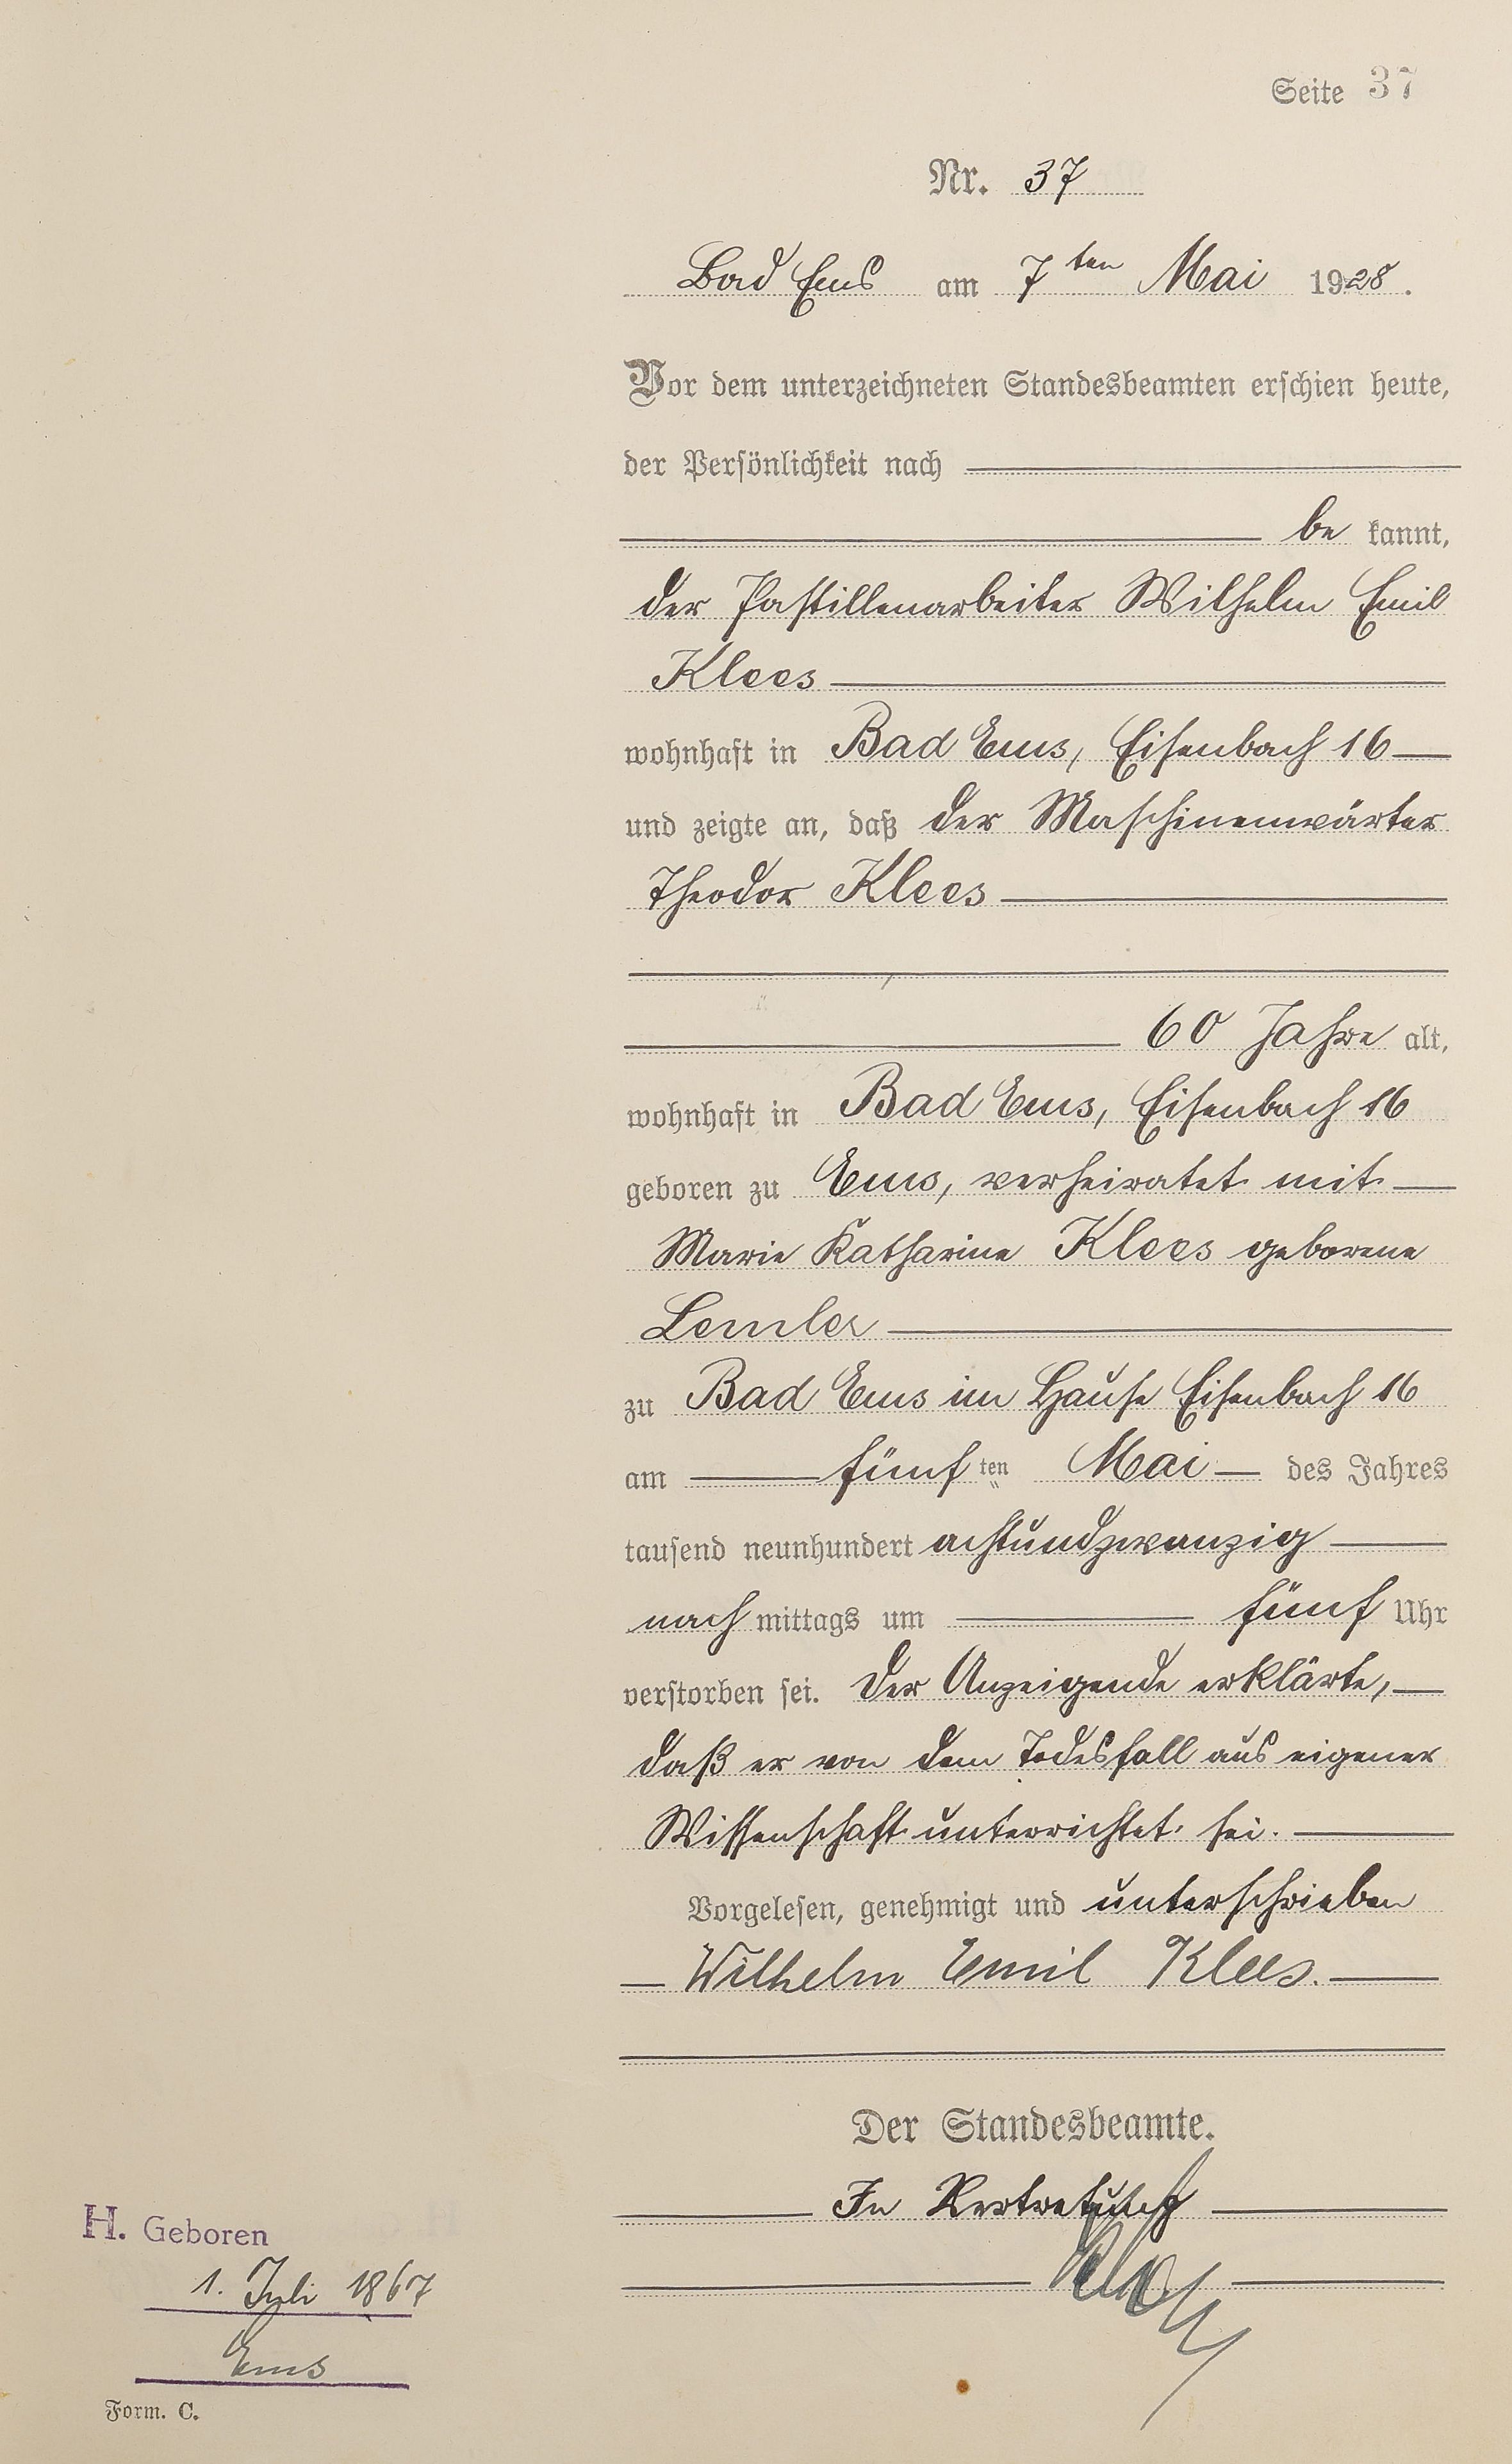 Seite 37
Nr. 37
Bad Ems am 7ten Mai 1928.
Vor dem unterzeichneten Standesbeamten erschien heute,
der Persönlichkeit nach
be kannt,
der Pastillenarbeiter Wilhelm Emil
Klees
wohnhaft in Bad Ems, Eisenbach 16
und zeigte an, daß der Maschinenwärter
Theodor Klees
60 Jahre alt,
wohnhaft in Bad Ems, Eisenbach 16
geboren zu Ems, verheiratet mit
Marie Katharine Klees geborene
Lemler
zu Bad Ems im Hause Eisenbach 16
am fünf ten Mai des Jahres
tausend neunhundert achtundzwanzig
nach mittags um fünf Uhr
verstorben sei. Der Anzeigende erklärte,
daß er von dem Todesfall aus eigener
Wissenschaft unterrichtet sei.
Vorgelesen, genehmigt und unterschrieben
Wilhelm Emil Klees.
Der Standesbeamte.
In Vertretung
H. Geboren
1. Juli 1867
Ems
Form. C.